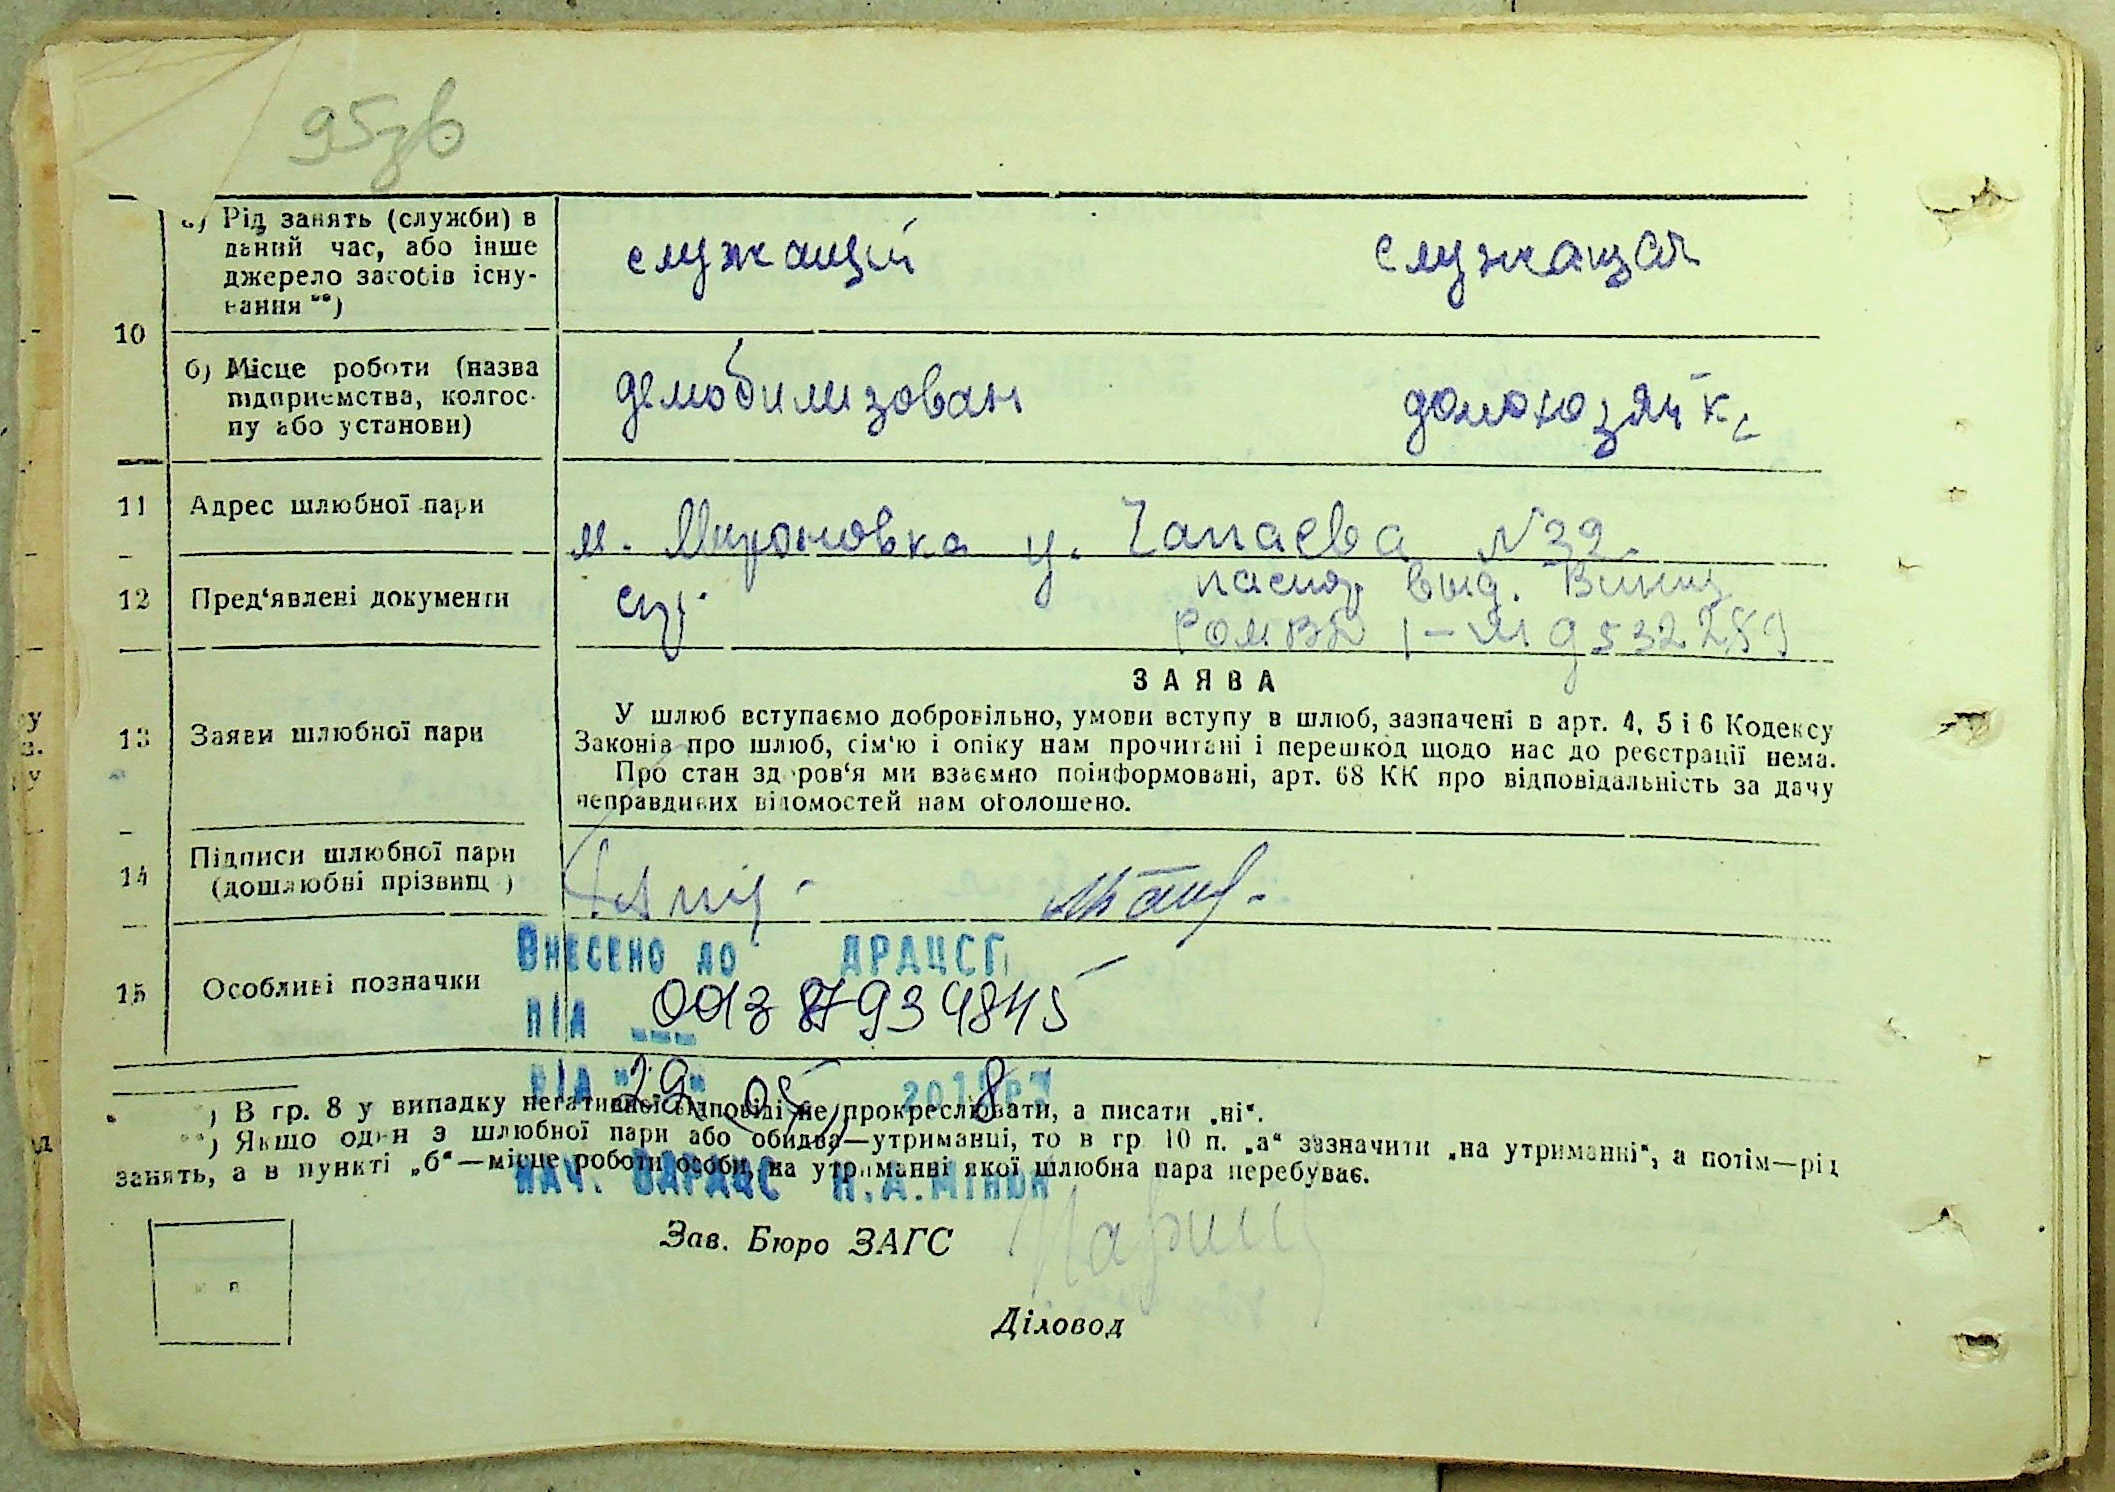 95зв
а) Рід занять (служби) в
даний час, або інше
джерело засобів існу-
вання **)
служащий
служащая
10
б) Місце роботи (назва
підприємства, колгос-
пу або установи)
демобилизован
домохозяйк
11
Адрес шлюбної пари
м. Мироновка у. Чапаева №32
12
Пред‘явлені документи
паспор выд. Винн
РОМВД 1-
532289
ЗАЯВА
13
Заяви шлюбної пари
У шлюб вступаємо добровільно, умови вступу в шлюб, зазначені в арт. 4, 5 і 6 Кодексу
Законів про шлюб, сім‘ю і опіку нам прочитані і перешкод щодо нас до реєстрації нема.
Про стан здоров‘я ми взаємно поінформовані, арт. 68 КК про відповідальність за дачу
неправдивих відомостей нам оголошено.
14
Підписи шлюбної пари
(дошлюбні прізвищ )
15
Особливі позначки
ВНЕСЕНО ДО ДРАЦСГ
П/А 001387934845
ВІД "29" 05 2018 Р
НАЧ. ВДРАЦС Н.А.МІНОК
*) В гр. 8 у випадку негативної відповіді не прокреслювати, а писати „ні“.
**) Якщо один з шлюбної пари або обидва—утриманці, то в гр. 10 п. „а“ зазначити „на утриманні“, а потім—рід
занять, а в пункті „б“—місце роботи особи, на утриманні якої шлюбна пара перебуває.
Зав. Бюро ЗАГС
М П
Діловод